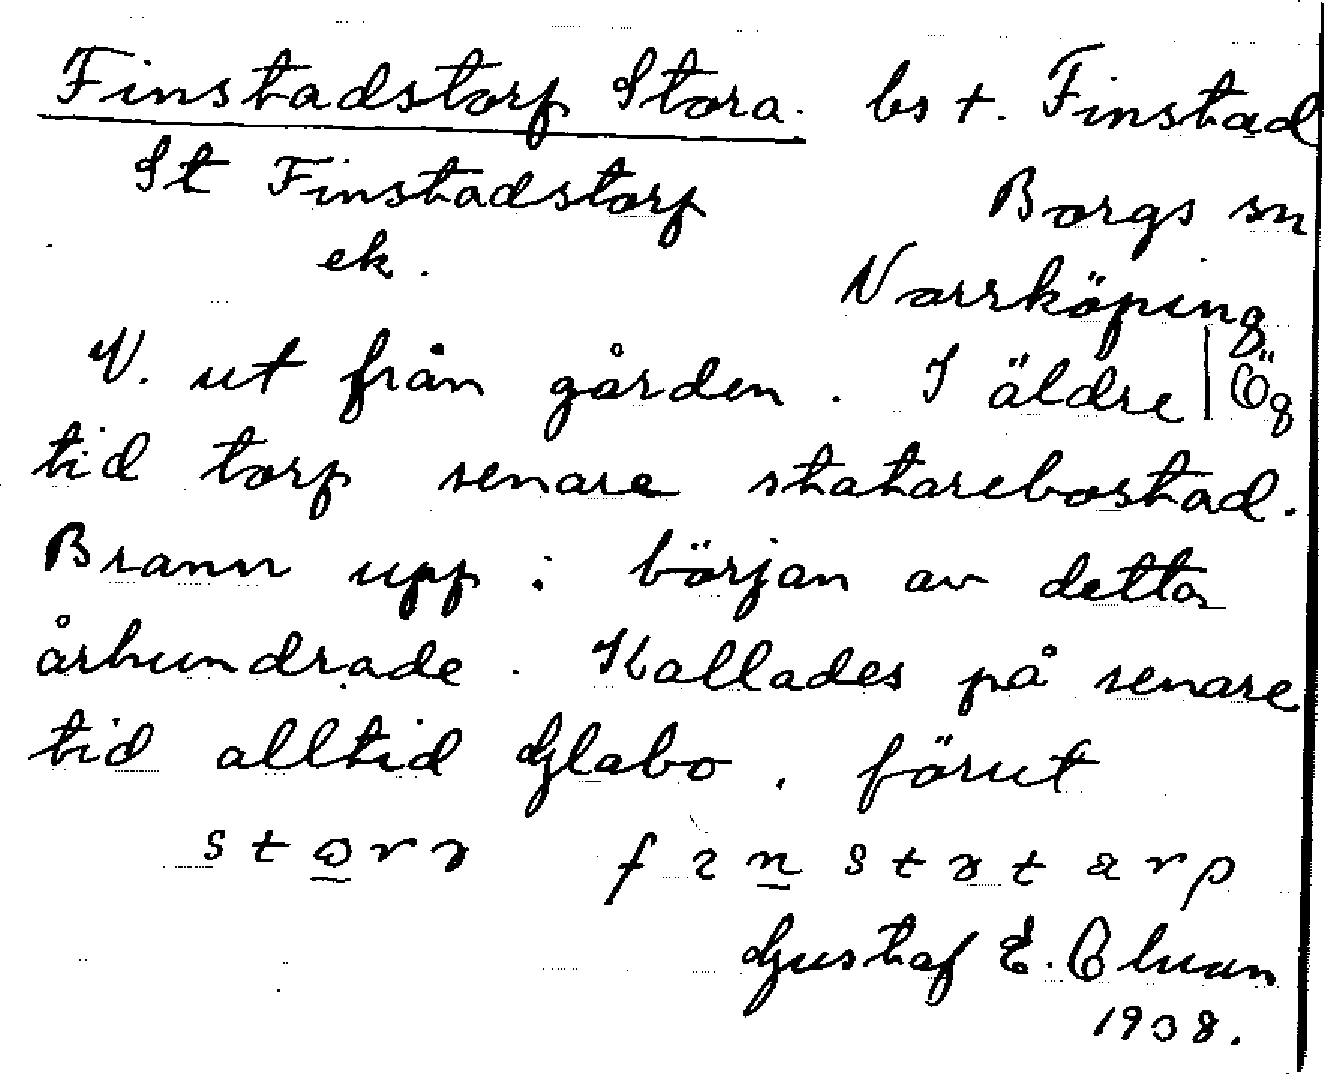 Finstadstorp Stora. bs t. Finstad
St Finstadstorp Borgs sn
ek. Norrköping
V. ut från gården. I äldre | Ög
tid torp senare statarebostad.
Brann upp i början av detta
århundrade. Kallades på senare
tid alltid Glabo, förut
Gustaf E.
1938.